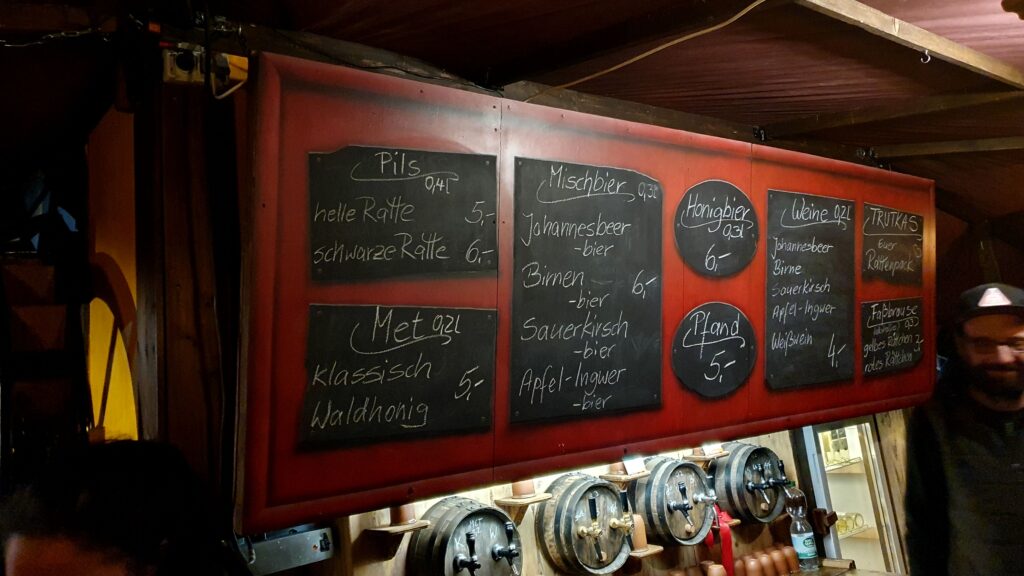 Pils
0,4l
helle Ratte 5,-
schwarze Ratte 6,-
Met 0,2l
klassisch
5,-
Waldhonig
Mischbier 0,3l
Johannesbeer
-bier
Birnen
6,-
-bier
Sauerkirsch
-bier
Apfel-Ingwer
-bier
Honigbier
0,3l
6,-
Pfand
5,-
Weine 0,2l
Johannesbeer
Birne
Sauerkirsch
Apfel-Ingwer
Weißwein
4,-
TRUTKAS
6uer
Rattenpack
Faßbrause
0,3
gelbes Rättchen
rotes Rättchen